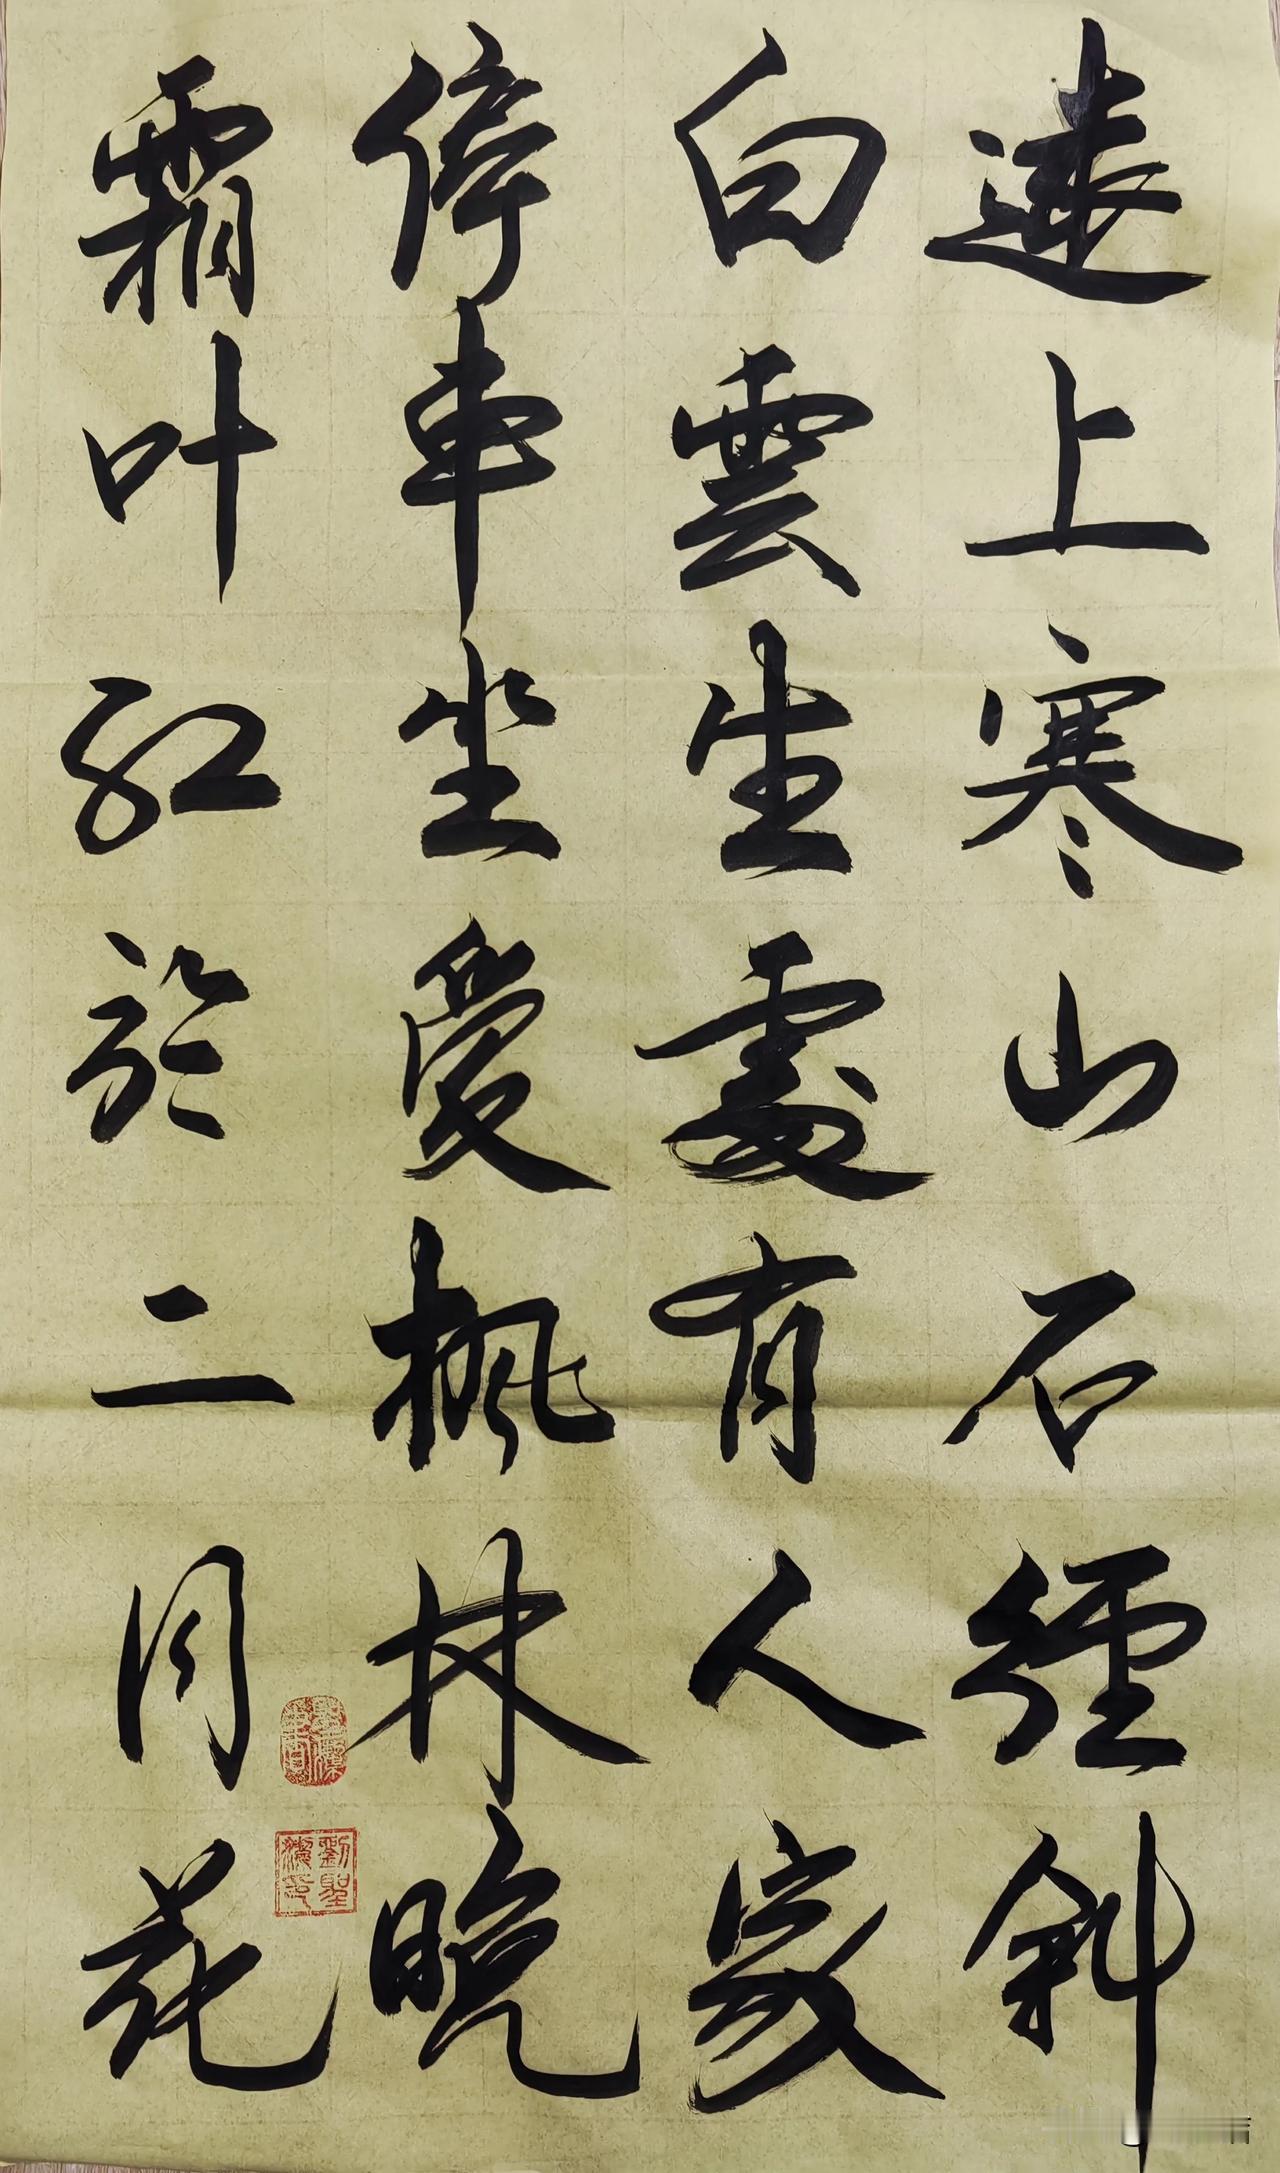 遠上寒山石徑斜
白雲生處有人家
停車坐愛楓林晚
霜叶紅於二月花
劉聖